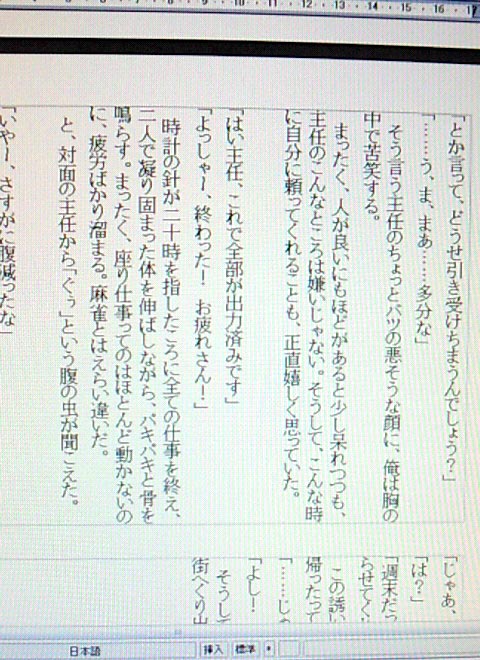 「とか言って、どうせ引き受けちまうんでしょう？」
「……う、ま、まあ……多分な」
そう言う主任のちょっとバツの悪そうな顔に、俺は胸の
中で苦笑する。
まったく、人が良いにもほどがあると少し呆れつつも、
主任のこんなところは嫌いじゃない。そうして、こんな時
に自分に頼ってくれることも、正直嬉しく思っていた。
「はい主任、これで全部が出力済みです」
「よっしゃー、終わった！　お疲れさん！」
時計の針が二十時を指したころに全ての仕事を終え、
二人で凝り固まった体を伸ばしながら、バキバキと骨を
鳴らす。まったく、座り仕事ってのはほとんど動かないの
に、疲労ばかり溜まる。麻雀とはえらい違いだ。
と、対面の主任から「ぐぅ」という腹の虫が聞こえた。
「いやー、さすがに腹減ったな」
「じゃあ、
「は？」
「週末だっ
らせてく
この誘い
帰ったって
「……じゃ
「よし！
そうして
街へくり出
日本語
挿入
標準
6 7 8 9 10 11 12 13 14 15 16 17